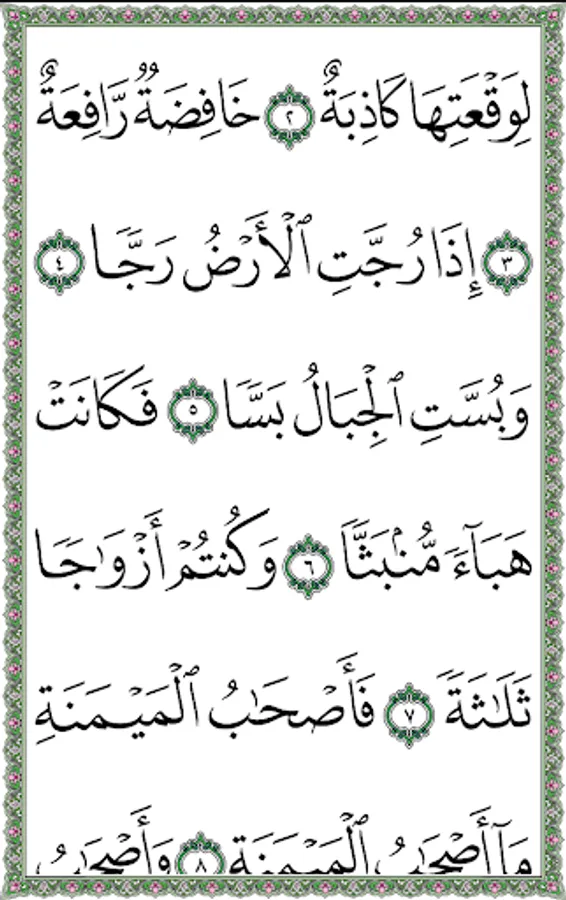 لِوَقْعَتِهَا كَاذِبَةٌ ٢ خَافِضَةٌ رَّافِعَةٌ
٣ إِذَا رُجَّتِ ٱلْأَرْضُ رَجًّا ٤
وَبُسَّتِ ٱلْجِبَالُ بَسًّا ٥ فَكَانَتْ
هَبَآءً مُّنۢبَثًّا ٦ وَكُنتُمْ أَزْوَٰجًا
ثَلَٰثَةً ٧ فَأَصْحَٰبُ ٱلْمَيْمَنَةِ
مَآ أَصْحَٰبُ ٱلْمَيْمَنَةِ ٨ وَأَصْحَٰبُ